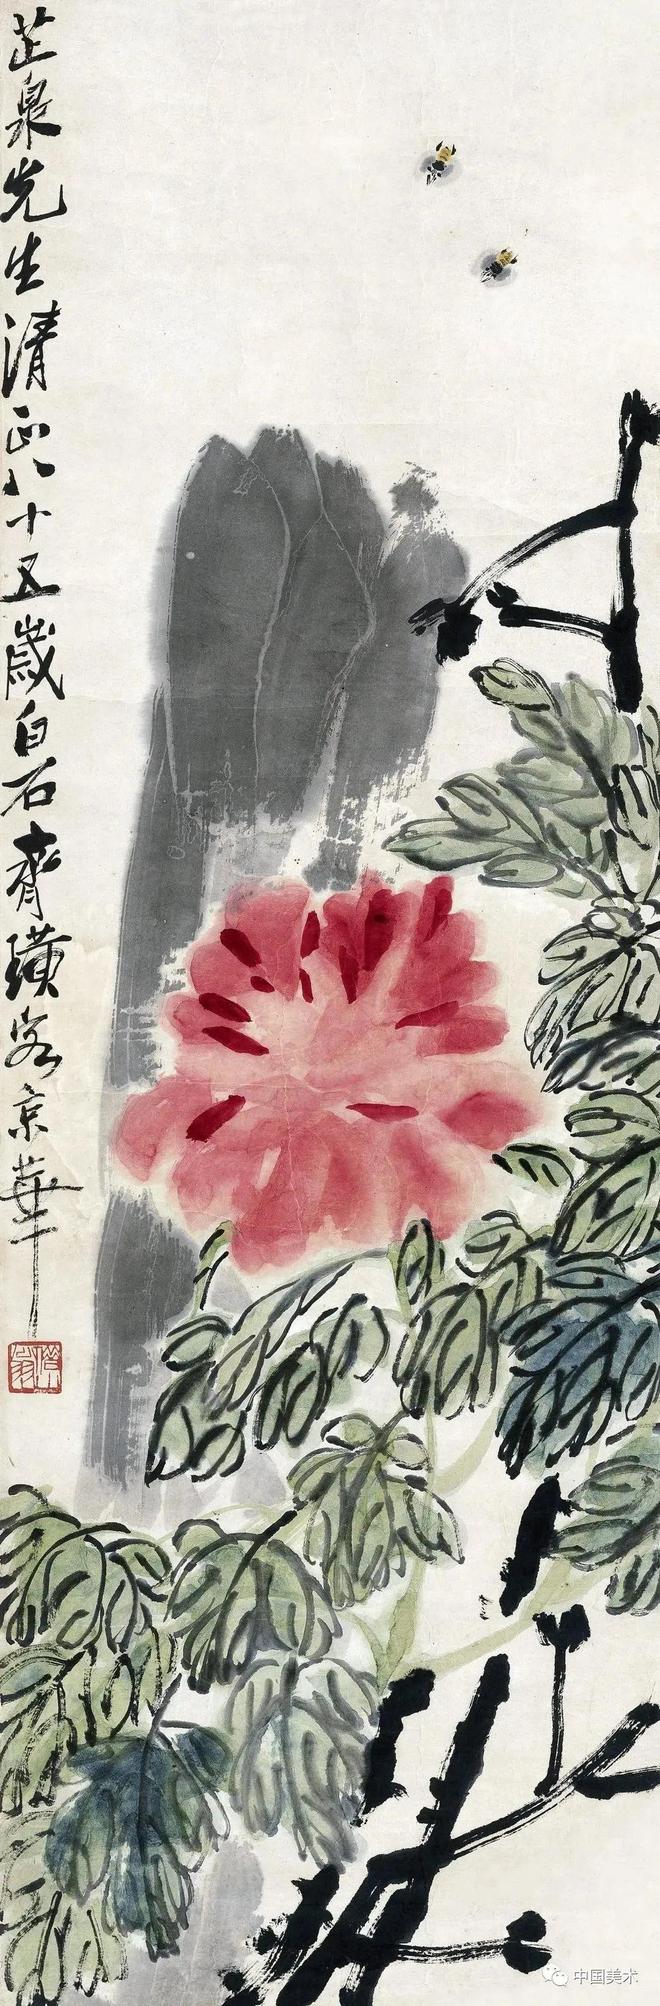 芷泉先生清正八十五岁白石齊璜客京華
中国美术